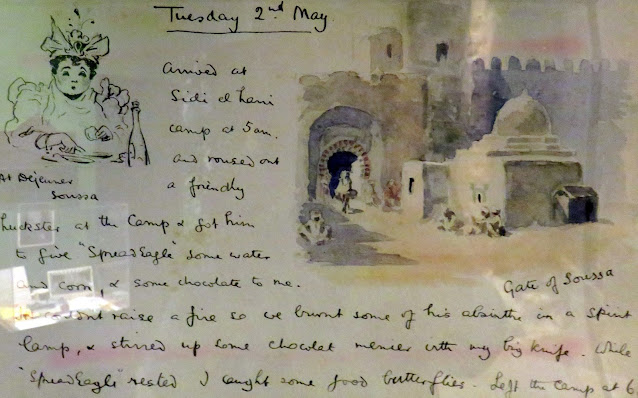 Tuesday 2nd May
Arrived at
Sidi el Hani
camp at 5am.
and roused out
a friendly
At Dejeuner
Soussa
huckster at the camp & got him
to give "SpreadEagle" some water
and corn, & some chocolate to me.
Gate of Soussa
couldnt raise a fire so we burnt some of his absinthe in a spirit
lamp, & stirred up some chocolat menier with my big knife. While
"SpreadEagle" rested I caught some good butterflies. Left the camp at 6